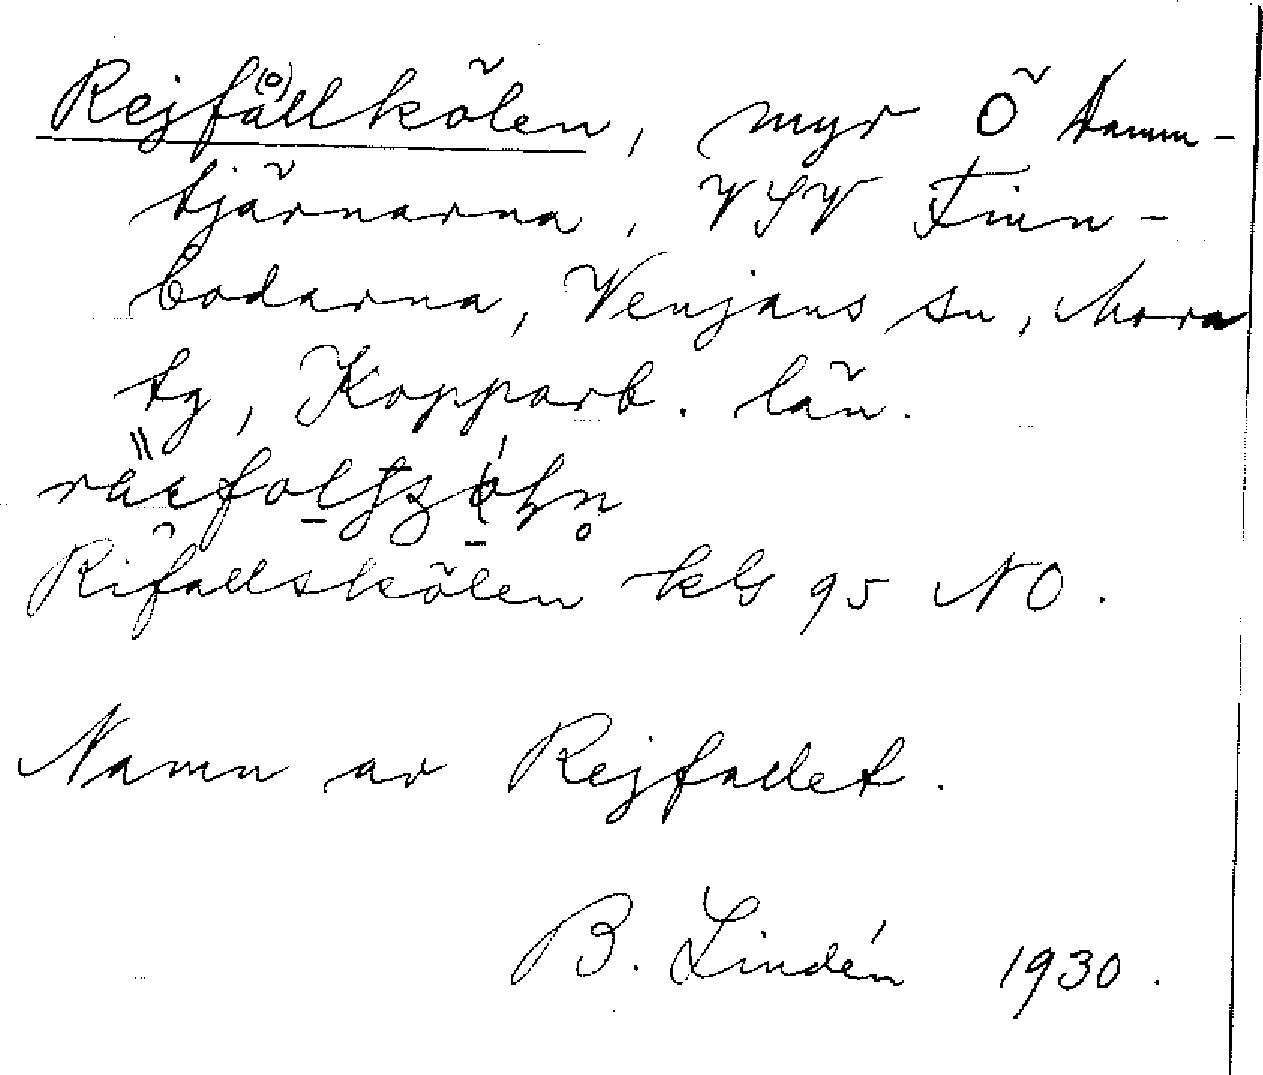 Rejfå̊llkölen, myr Ö Damm-
tjärnarna, VSV Finn-
bodarna, Venjans sn, Mora
tg, Kopparb. län.
Rifallskölen kbl 95 NO.
Namn av Rejfallet.
B. Lindén 1930.